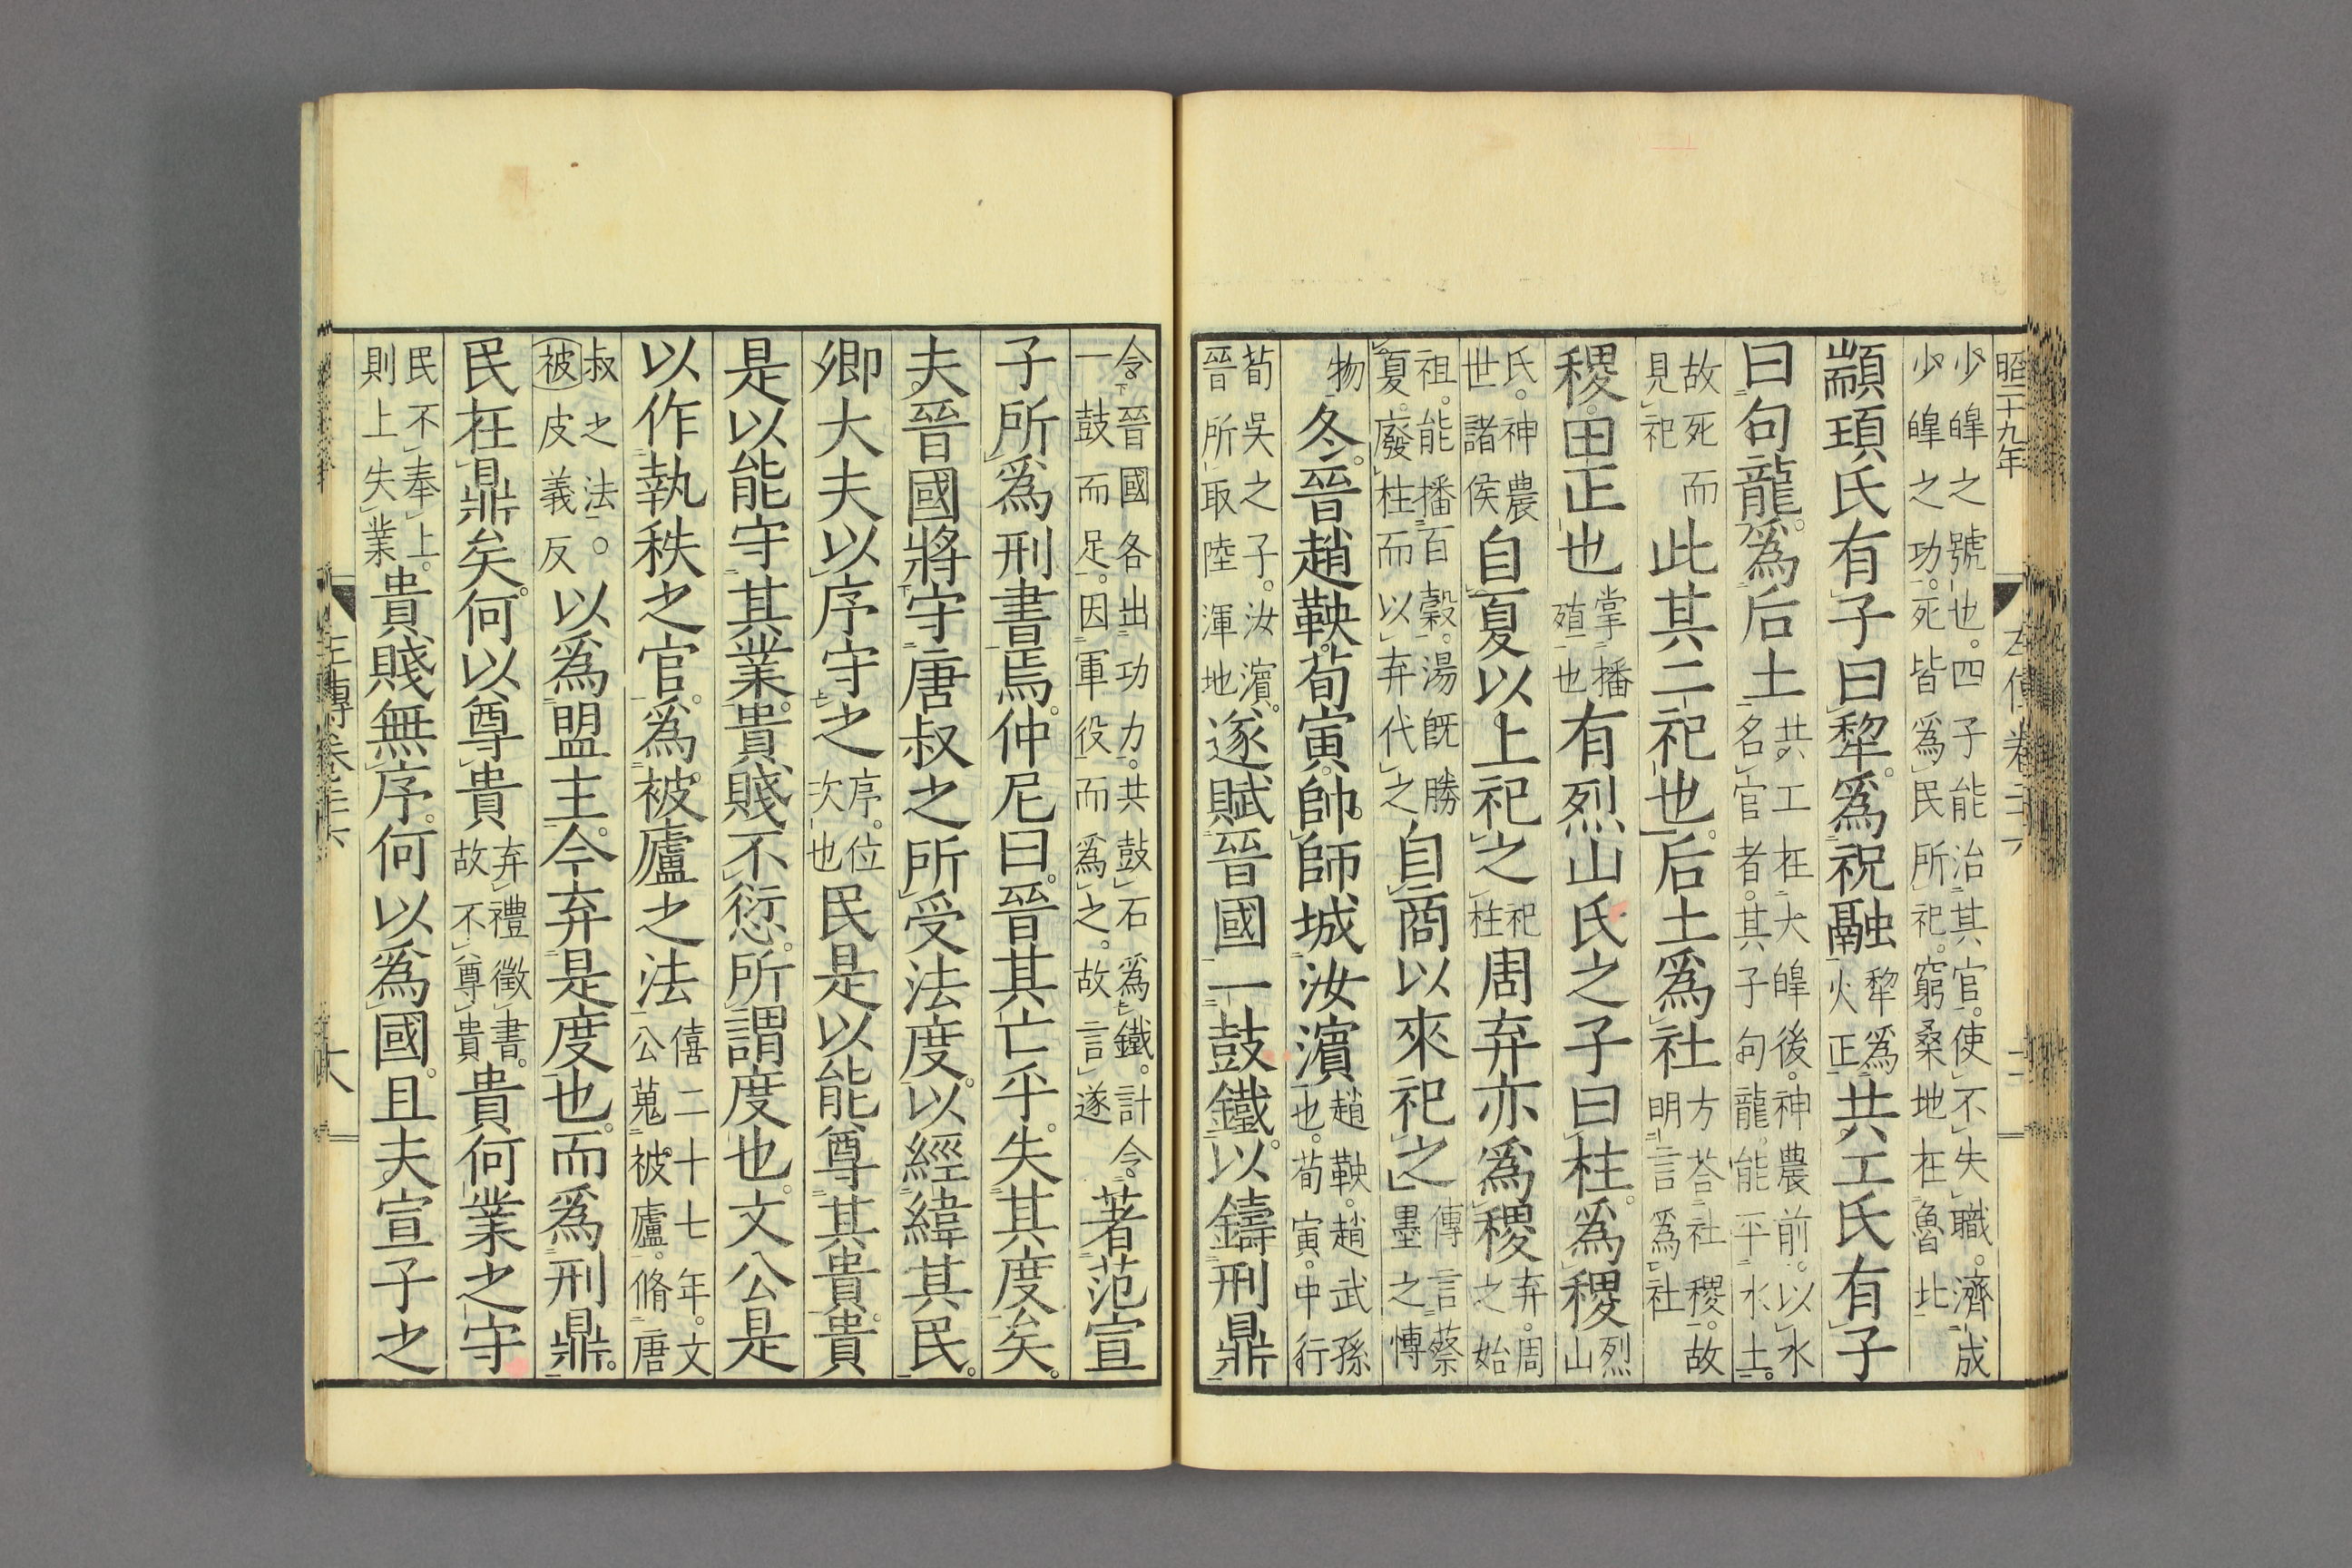 昭二十九年
左傳卷二十六
少皡之號也。四子能治其官。使不失職。濟成
少皡之功。死皆爲民所祀。窮桑地在魯北
顓頊氏有子曰犂。爲祝融犂爲火正共工氏有子
曰句龍。爲后土共工在大皡後。神農前。以水名官者。其子句龍。能平水土。
故死而見祀此其二祀也。后土爲社方荅社稷。故明言爲社
稷。田正也掌播殖也有烈山氏之子曰柱。爲稷烈山
氏。神農世諸侯自夏以上祀之祀柱周弃亦爲稷弃。周之始
祖。能播百穀。湯既勝夏。廢柱而以弃代之自商以來祀之傳言蔡墨之博
物冬。晉趙鞅。荀寅。帥師城汝濱趙鞅。趙武孫也。荀寅。中行
荀吳之子。汝濱。晉所取陸渾地遂賦晉國一鼓鐵。以鑄刑鼎
令晉國各出功力。共鼓石爲鐵。計令一鼓而足。因軍役而爲之。故言遂著范宣
子所爲刑書焉。仲尼曰。晉其亡乎。失其度矣。
夫晉國將守唐叔之所受法度。以經緯其民。
卿大夫以序守之序。位次也民是以能尊其貴。貴
是以能守其業。貴賤不愆。所謂度也。文公是
以作執秩之官。爲被廬之法僖二十七年。文公蒐被廬。脩唐
叔之法。○被皮義反以爲盟主。今弃是度也。而爲刑鼎。
民在鼎矣。何以尊貴弃禮徵書。故不尊貴貴何業之守
民不奉上。則上失業貴賤無序。何以爲國。且夫宣子之